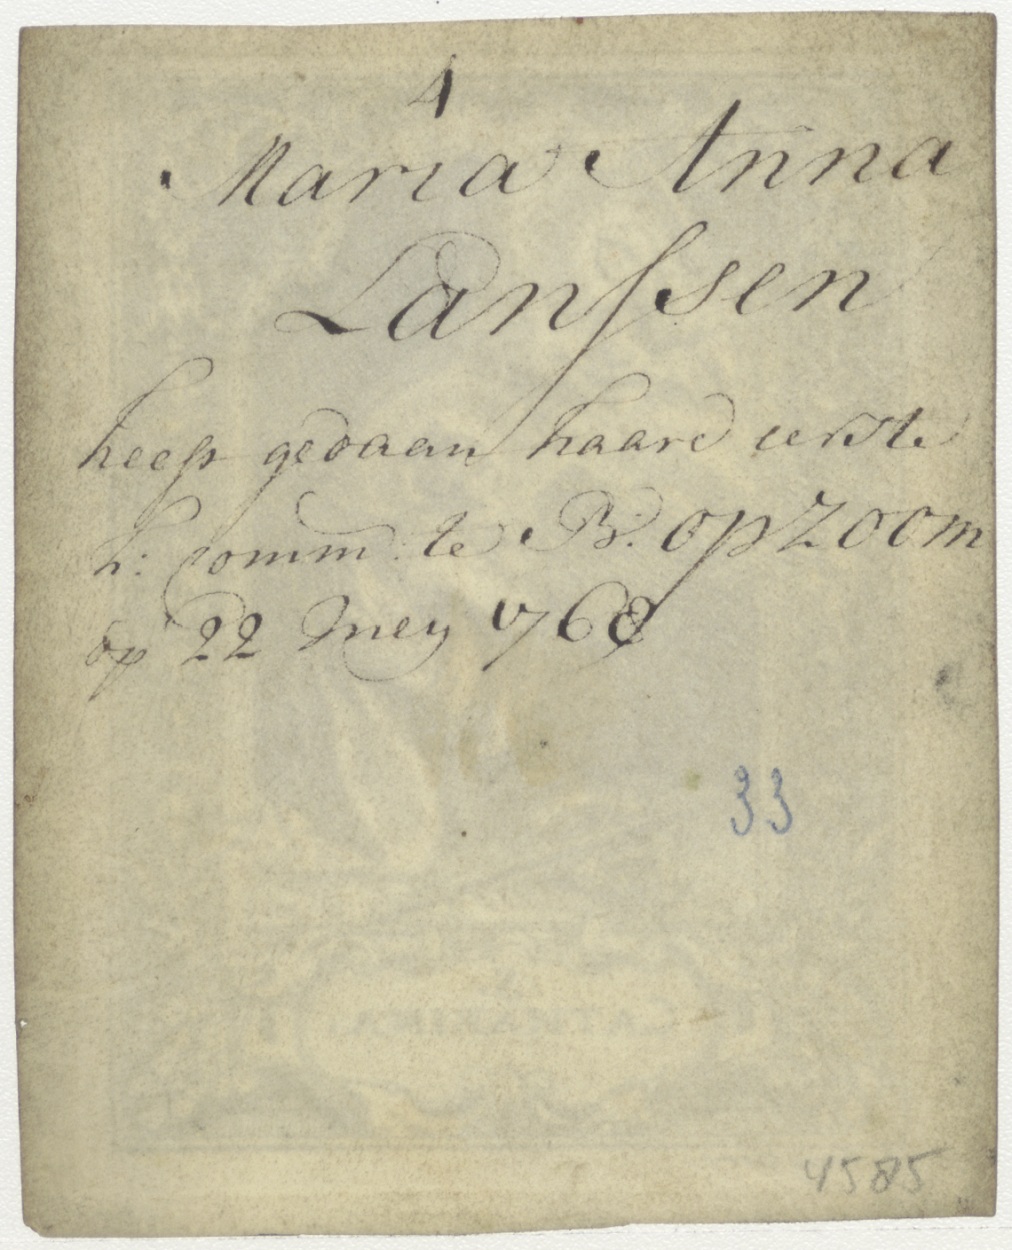 4
Maria Anna
Lanssen
heeft gedaan haare eerste
h: Comm: te B: op Zoom
op 22 mey 1768
33
4585